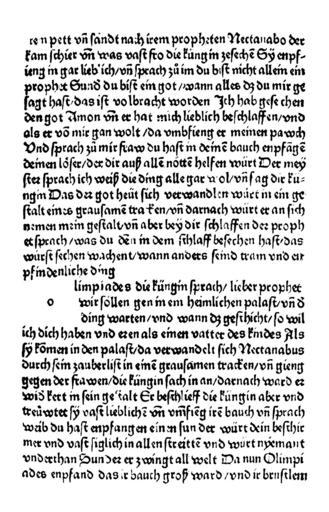 ren pett vñ sandt nach irem propheten Nectanabo der
kam schier vñ was vast fro die küngin zesehē Sy enpf-
ieng in gar lieblich/ vñ sprach zů im du bist nicht allein ein
prophet Sunđ du bist ein got/ wann alles dz du mir ge
sagt hast/ das ist volbracht worden Ich hab gesechen
den got Amon vñ er hat mich lieblich beschlaffen/ vnd
als er vō mir gan wolt/ da vmbfieng er meinen pawch
Vnd sprach zů mir fraw du hast in deinē bauch enpfāgē
deinen lőser/ der dir auß allen nőtten helfen würt Der mey
ster sprach ich weiß die ding alle gar wol/ vñ sag dir kü-
ngin Das der got heüt sich verwandlen würt in ein ge
stalt eines grausamē tracken/ vñ darnach würt er an sich
nemen mein gestalt/ vñ aber bey dir schlaffen der proph
et sprach/ was du dēn in dem schlaff besechen hast/ das
würst sechen wachent/ wann anders seind traum vnd em
pfindenliche ding
limpiades die küngin sprach/ lieber prophet
o wir sollen gen in em heimlichen palast/ vñ đ
ding warten/ vnd wann dz geschicht/ so wil
ich dich haben vnd eren als einen vatter des kindes Als
sy kőmen in den palast/ da verwandelt sich Nectanabus
durch sein zauberlist in einē grausamen tracken/ vñ gieng
gegen der frawen/ die küngin sach in an/ darnach ward er
wid kert in sein gestalt Er beschlieff die küngin aber vnd
treüwtet sy vast lieblichē vñ vmfieng irē bauch vñ sprach
weib du hast enpfangen ein en sun der würt dein beschir
mer vnd vast siglich in allen streittē vnd würt nyemant
vnderthan Sunder er zwingt all welt Da nun Olimpi
ades enpfand das ir bauch groß ward/ vnd ir brüstlem